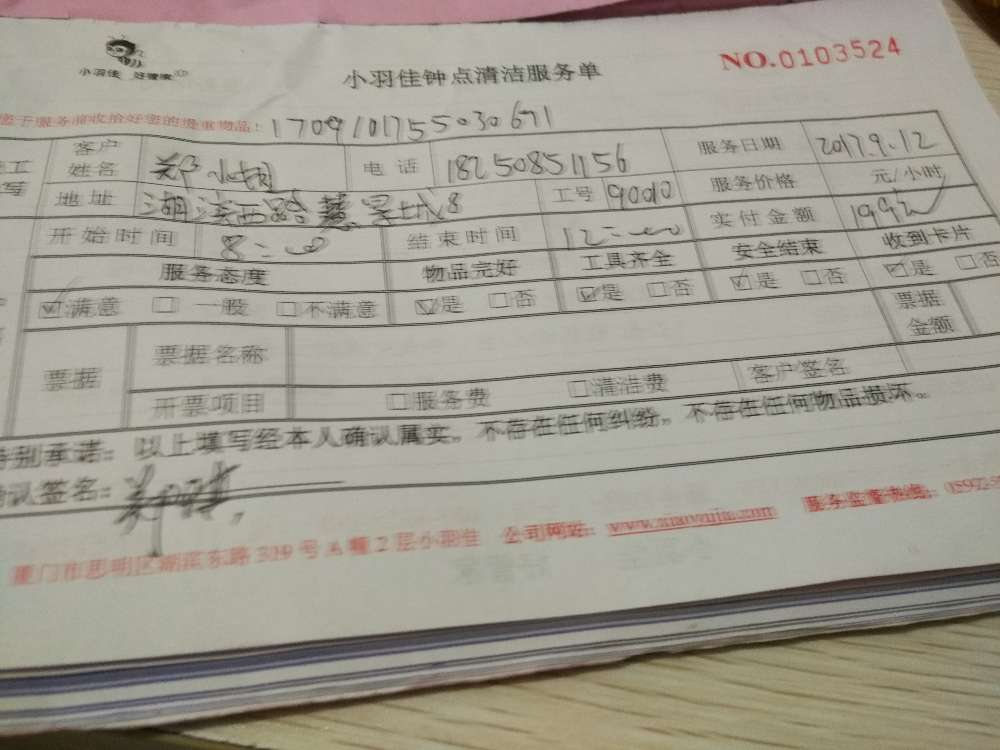 小羽佳 好管家
小羽佳钟点清洁服务单
NO.0103524
您于服务前收给好您的贵重物品！1709101755030671
客户姓名 郑小姐 电话 18250851756 服务日期 2017.9.12
地址 湖滨西路慧景城8 工号 90010 服务价格 元/小时
开始时间 8:00 结束时间 12:00 实付金额 199元
服务态度 物品完好 工具齐全 安全结束 收到卡片
☑满意 □一般 □不满意 ☑是 □否 ☑是 □否 ☑是 □否 ☑是 □否
票据 票据名称 票据金额
开票项目 □服务费 □清洁费 客户签名
特别承诺：以上填写经本人确认属实。不存在任何纠纷。不存在任何物品损坏。
确认签名：
厦门市思明区湖滨东路319号A幢2层小羽佳 公司网站：www.xiaoyujia.com 服务监督热线：0592-5